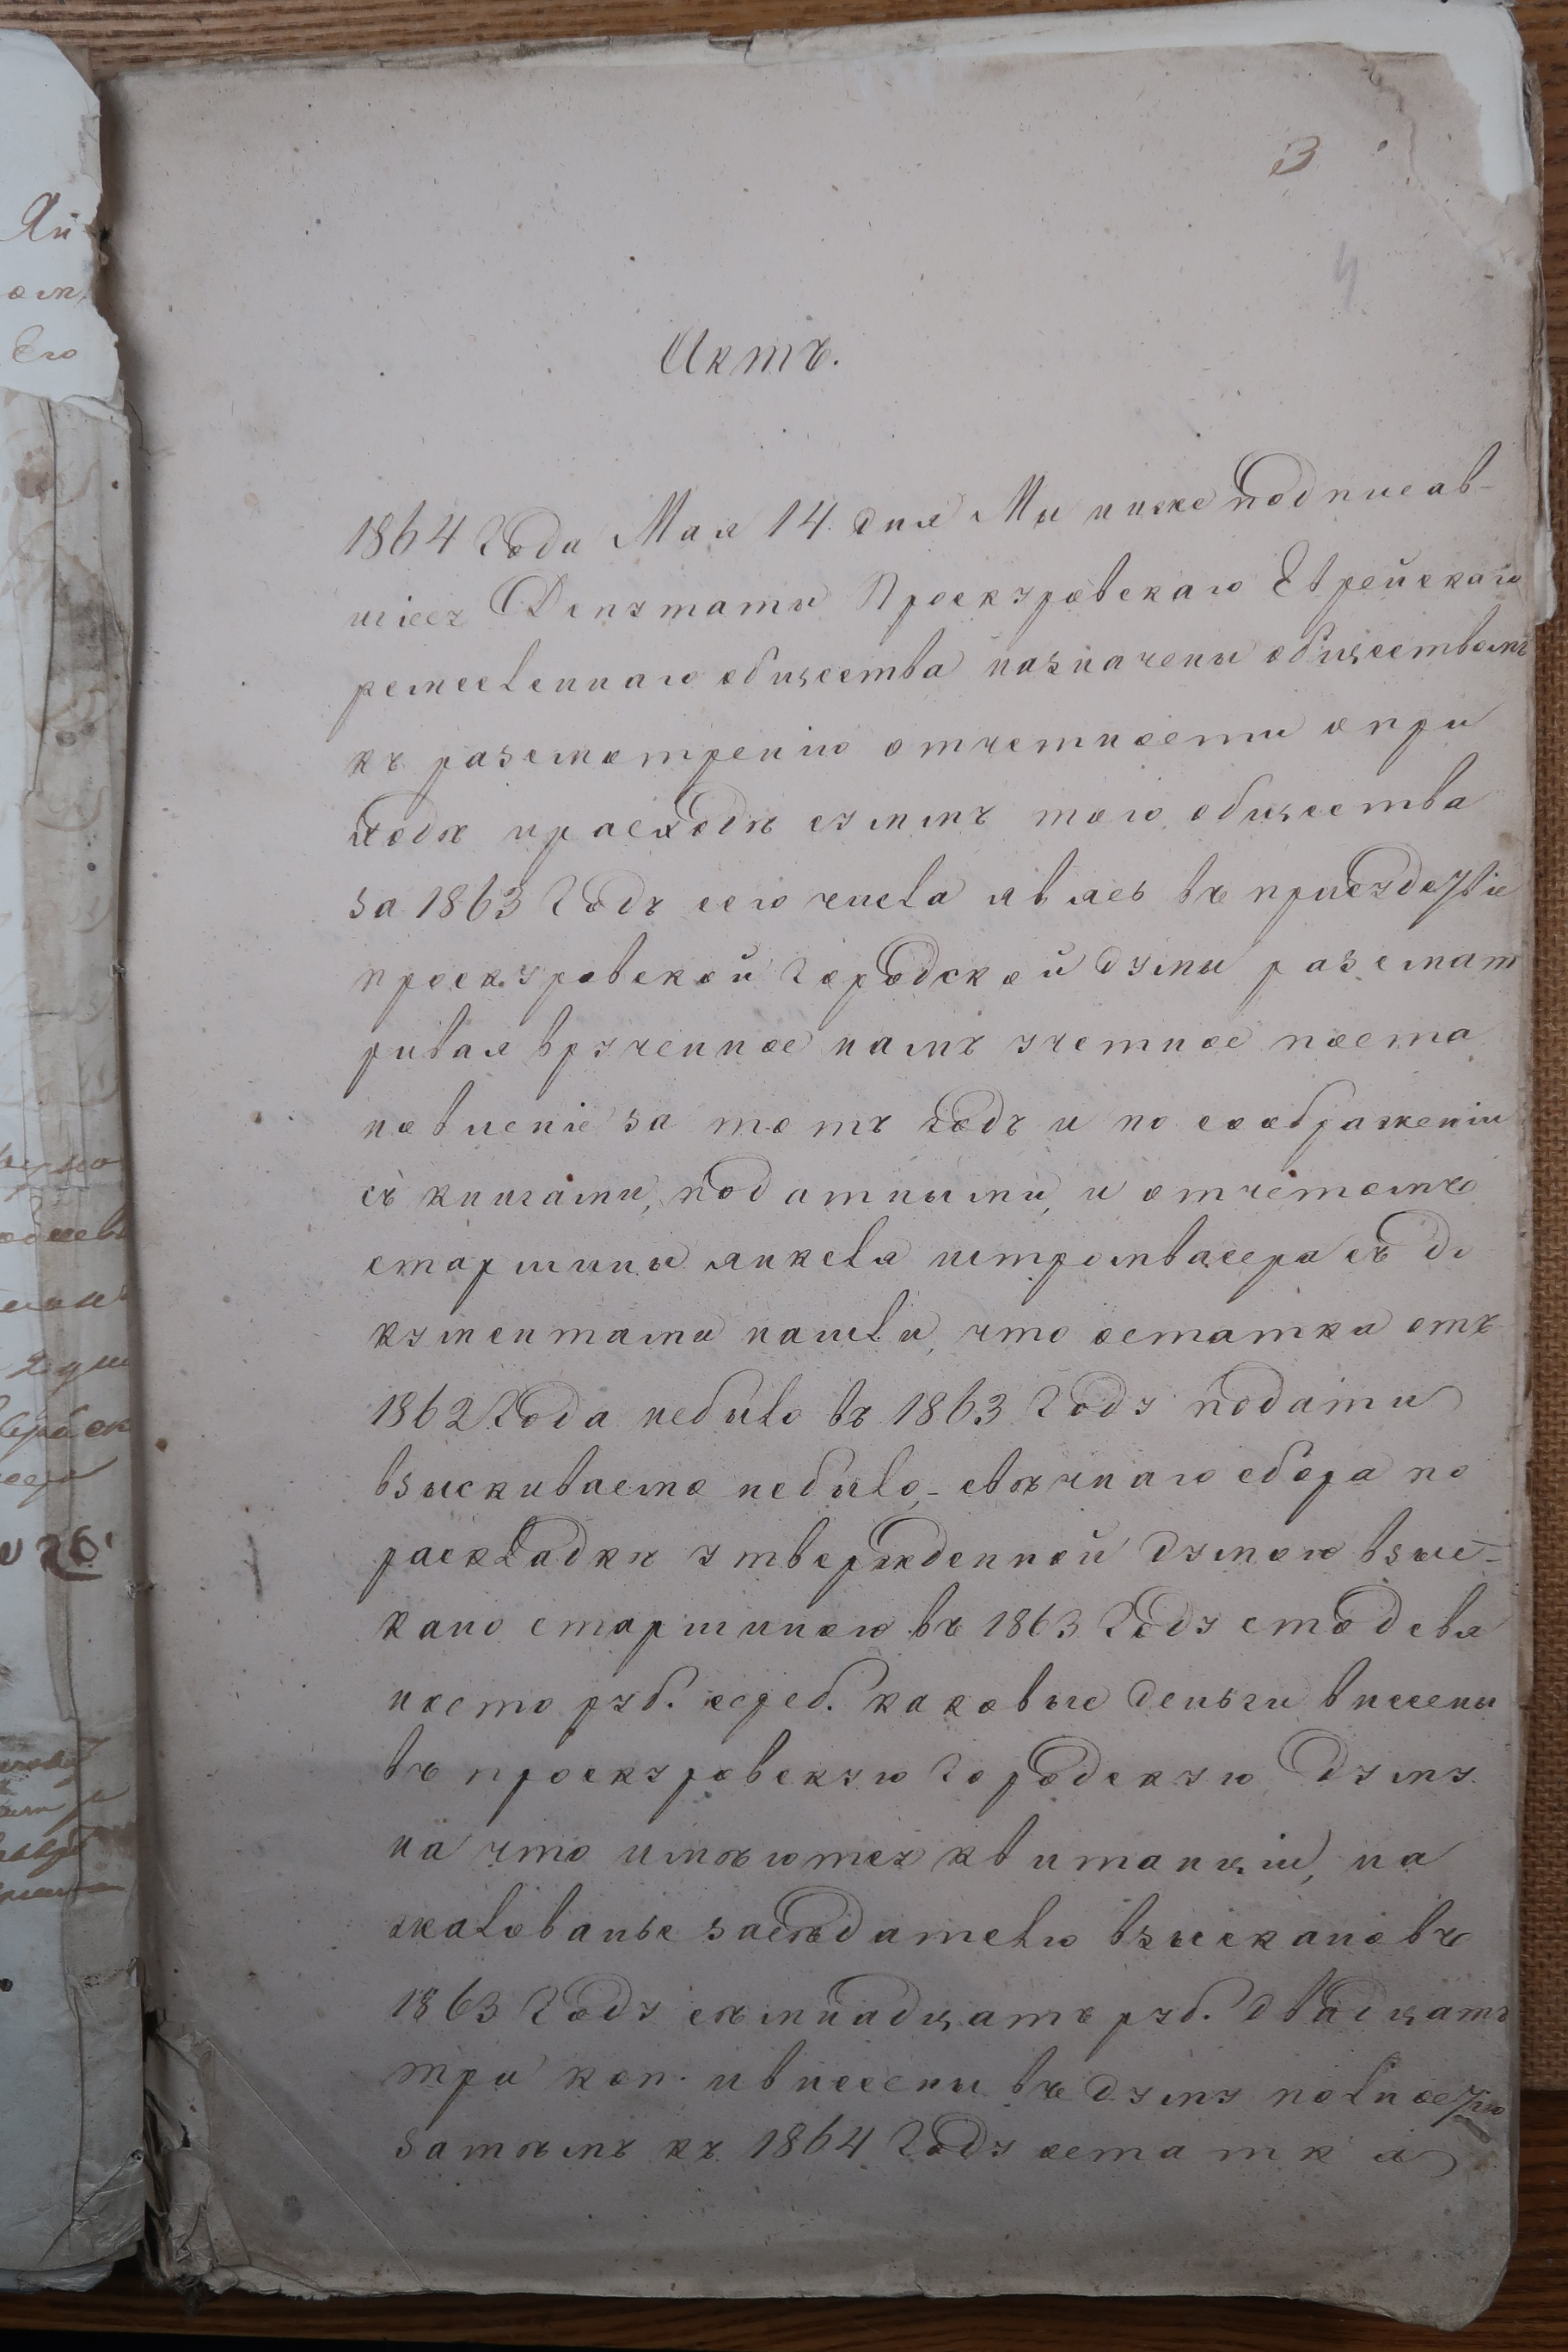 3
4
Актъ.
1864 Года Мая 14. дня Мы ниже подписав-
шіесъ Депутаты Проскуровскаго Еврейскаго
ремесленнаго общества назначены обществомъ
къ разсмотренію отчетности о при
ходѣ и расходѣ суммъ того общества
за 1863 Годъ сего числа явясь въ присудствіе
проскуровской Городской Думы разсмат
ривая врученное намъ учетное поста
новленіе за тотъ годъ и по соображеніи
съ книгами, податными, и отчетомъ
старшины янкеля штромвасера съ до
кументами нашли, что остатка отъ
1862 Года небыло въ 1863 Году подати
взыскиваемо небыло, свѣчнаго сбора по
раскладкѣ утвержденной Думою взыс-
кано старшиною въ 1863 Году сто девя
носто руб. сереб. каковые деньги внесены
въ проскуровскую Городскую Думу.
на что имѣются квитанціи, на
жалованье засѣдателю взыскано въ
1863 Году сѣмнадцатъ руб. двадцатъ
три коп. и внесены въ Думу полностію
затѣмъ къ 1864 Году остатка
Яй
Его
26.